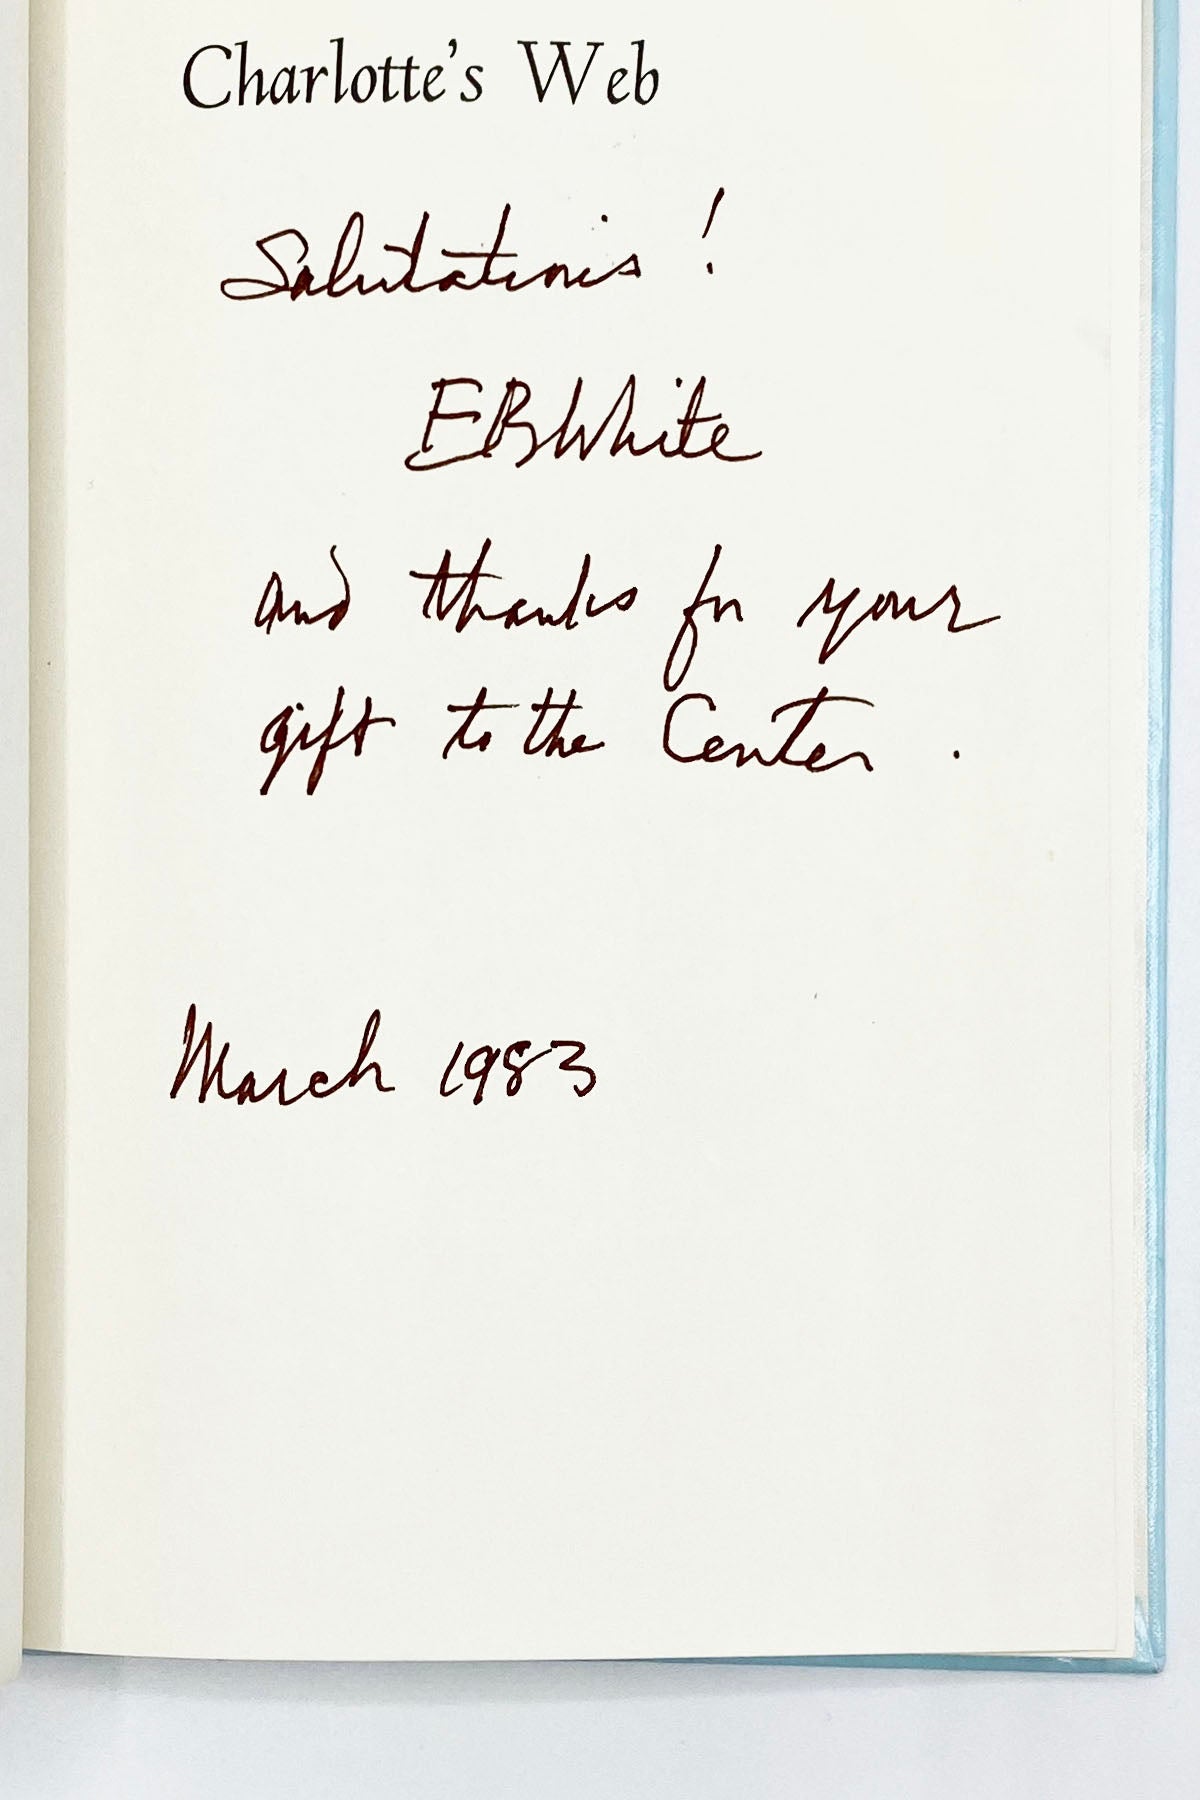 Charlotte's Web
Salutations!
EB White
and thanks for your
gift to the Center.
March 1983